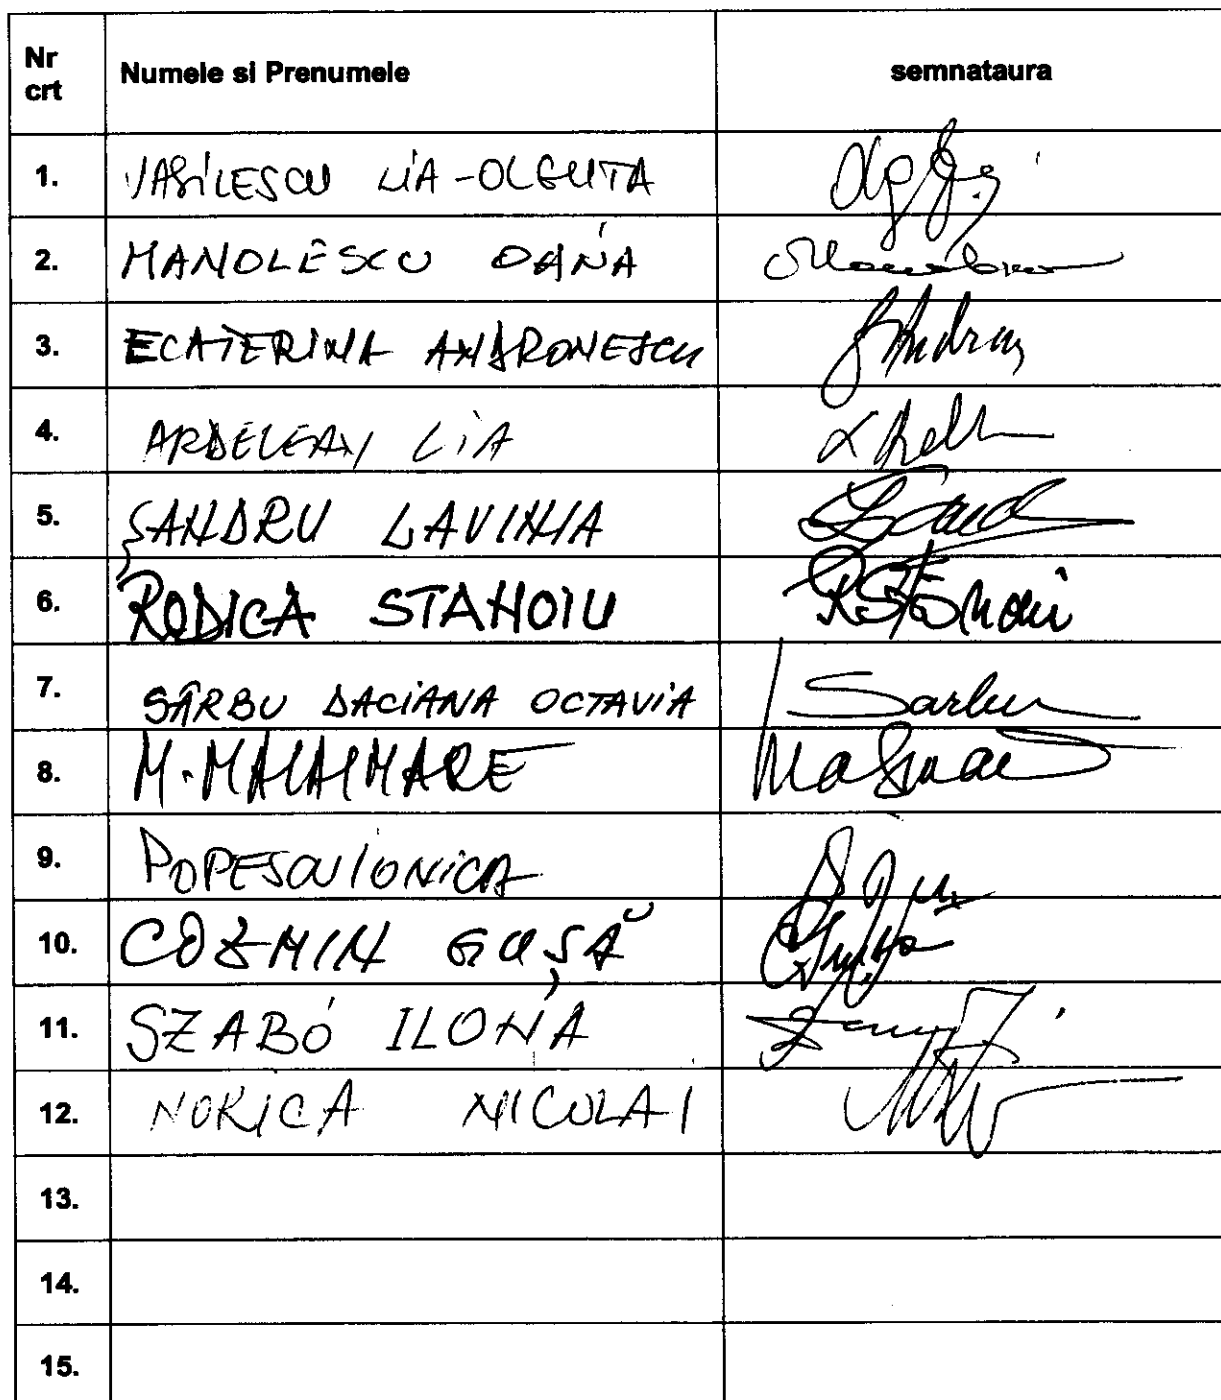 Nr crt Numele si Prenumele semnataura
1. VASILESCU LIA-OLGUTA
2. MANOLESCU OANA
3. ECATERINA ANDRONESCU
4. ARDELEAN LIA
5. ȘANDRU LAVINIA
6. RODICA STANOIU
7. SÂRBU DACIANA OCTAVIA Sarbu
8. M. MALAIMARE
9. POPESCU IONICA
10. COZMIN GUȘĂ
11. SZABÓ ILONA
12. NORICA NICOLAI
13.
14.
15.